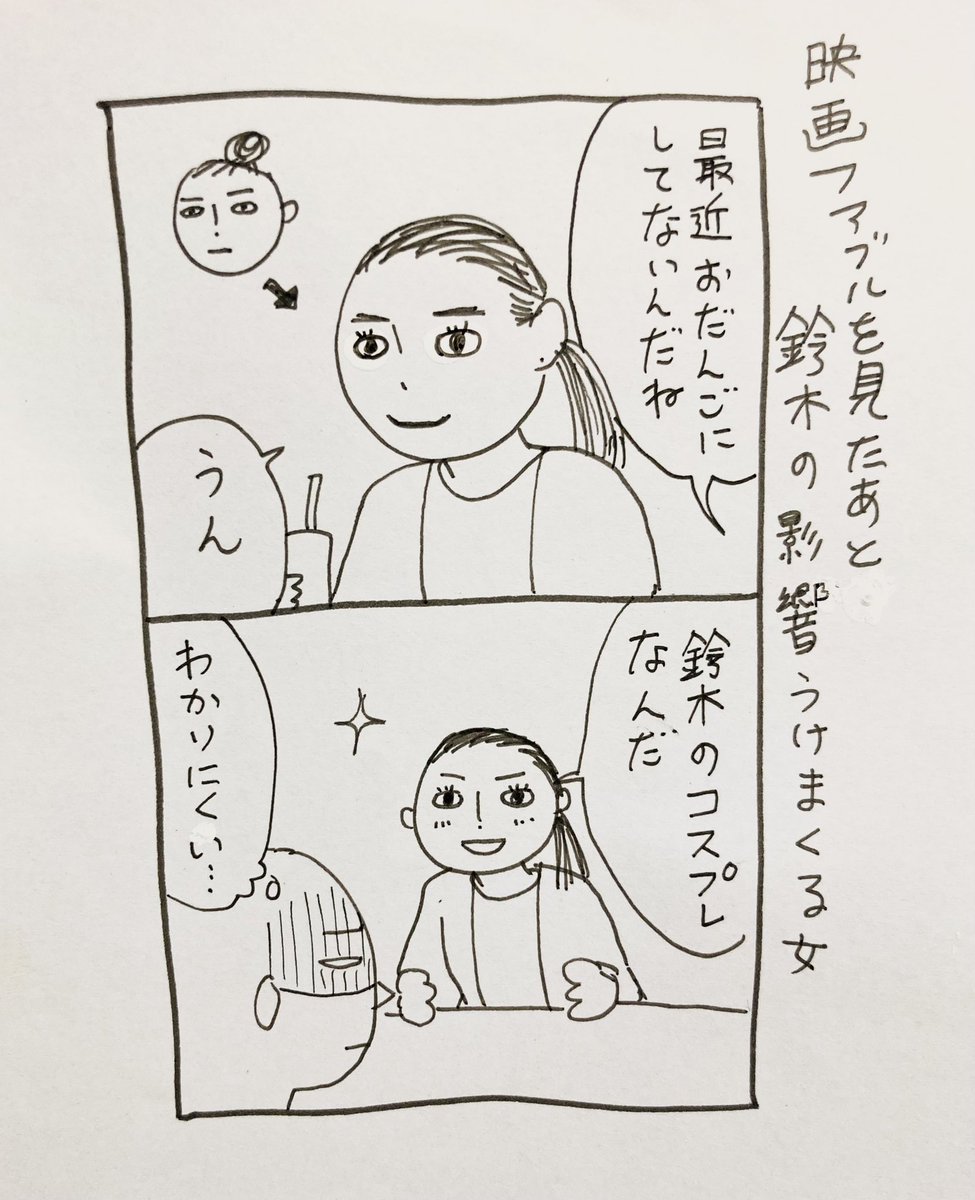 映画ファブルを見たあと
鈴木の影響うけまくる女
最近おだんごに
してないんだね
うん
鈴木のコスプレ
なんだ
わかりにくい…